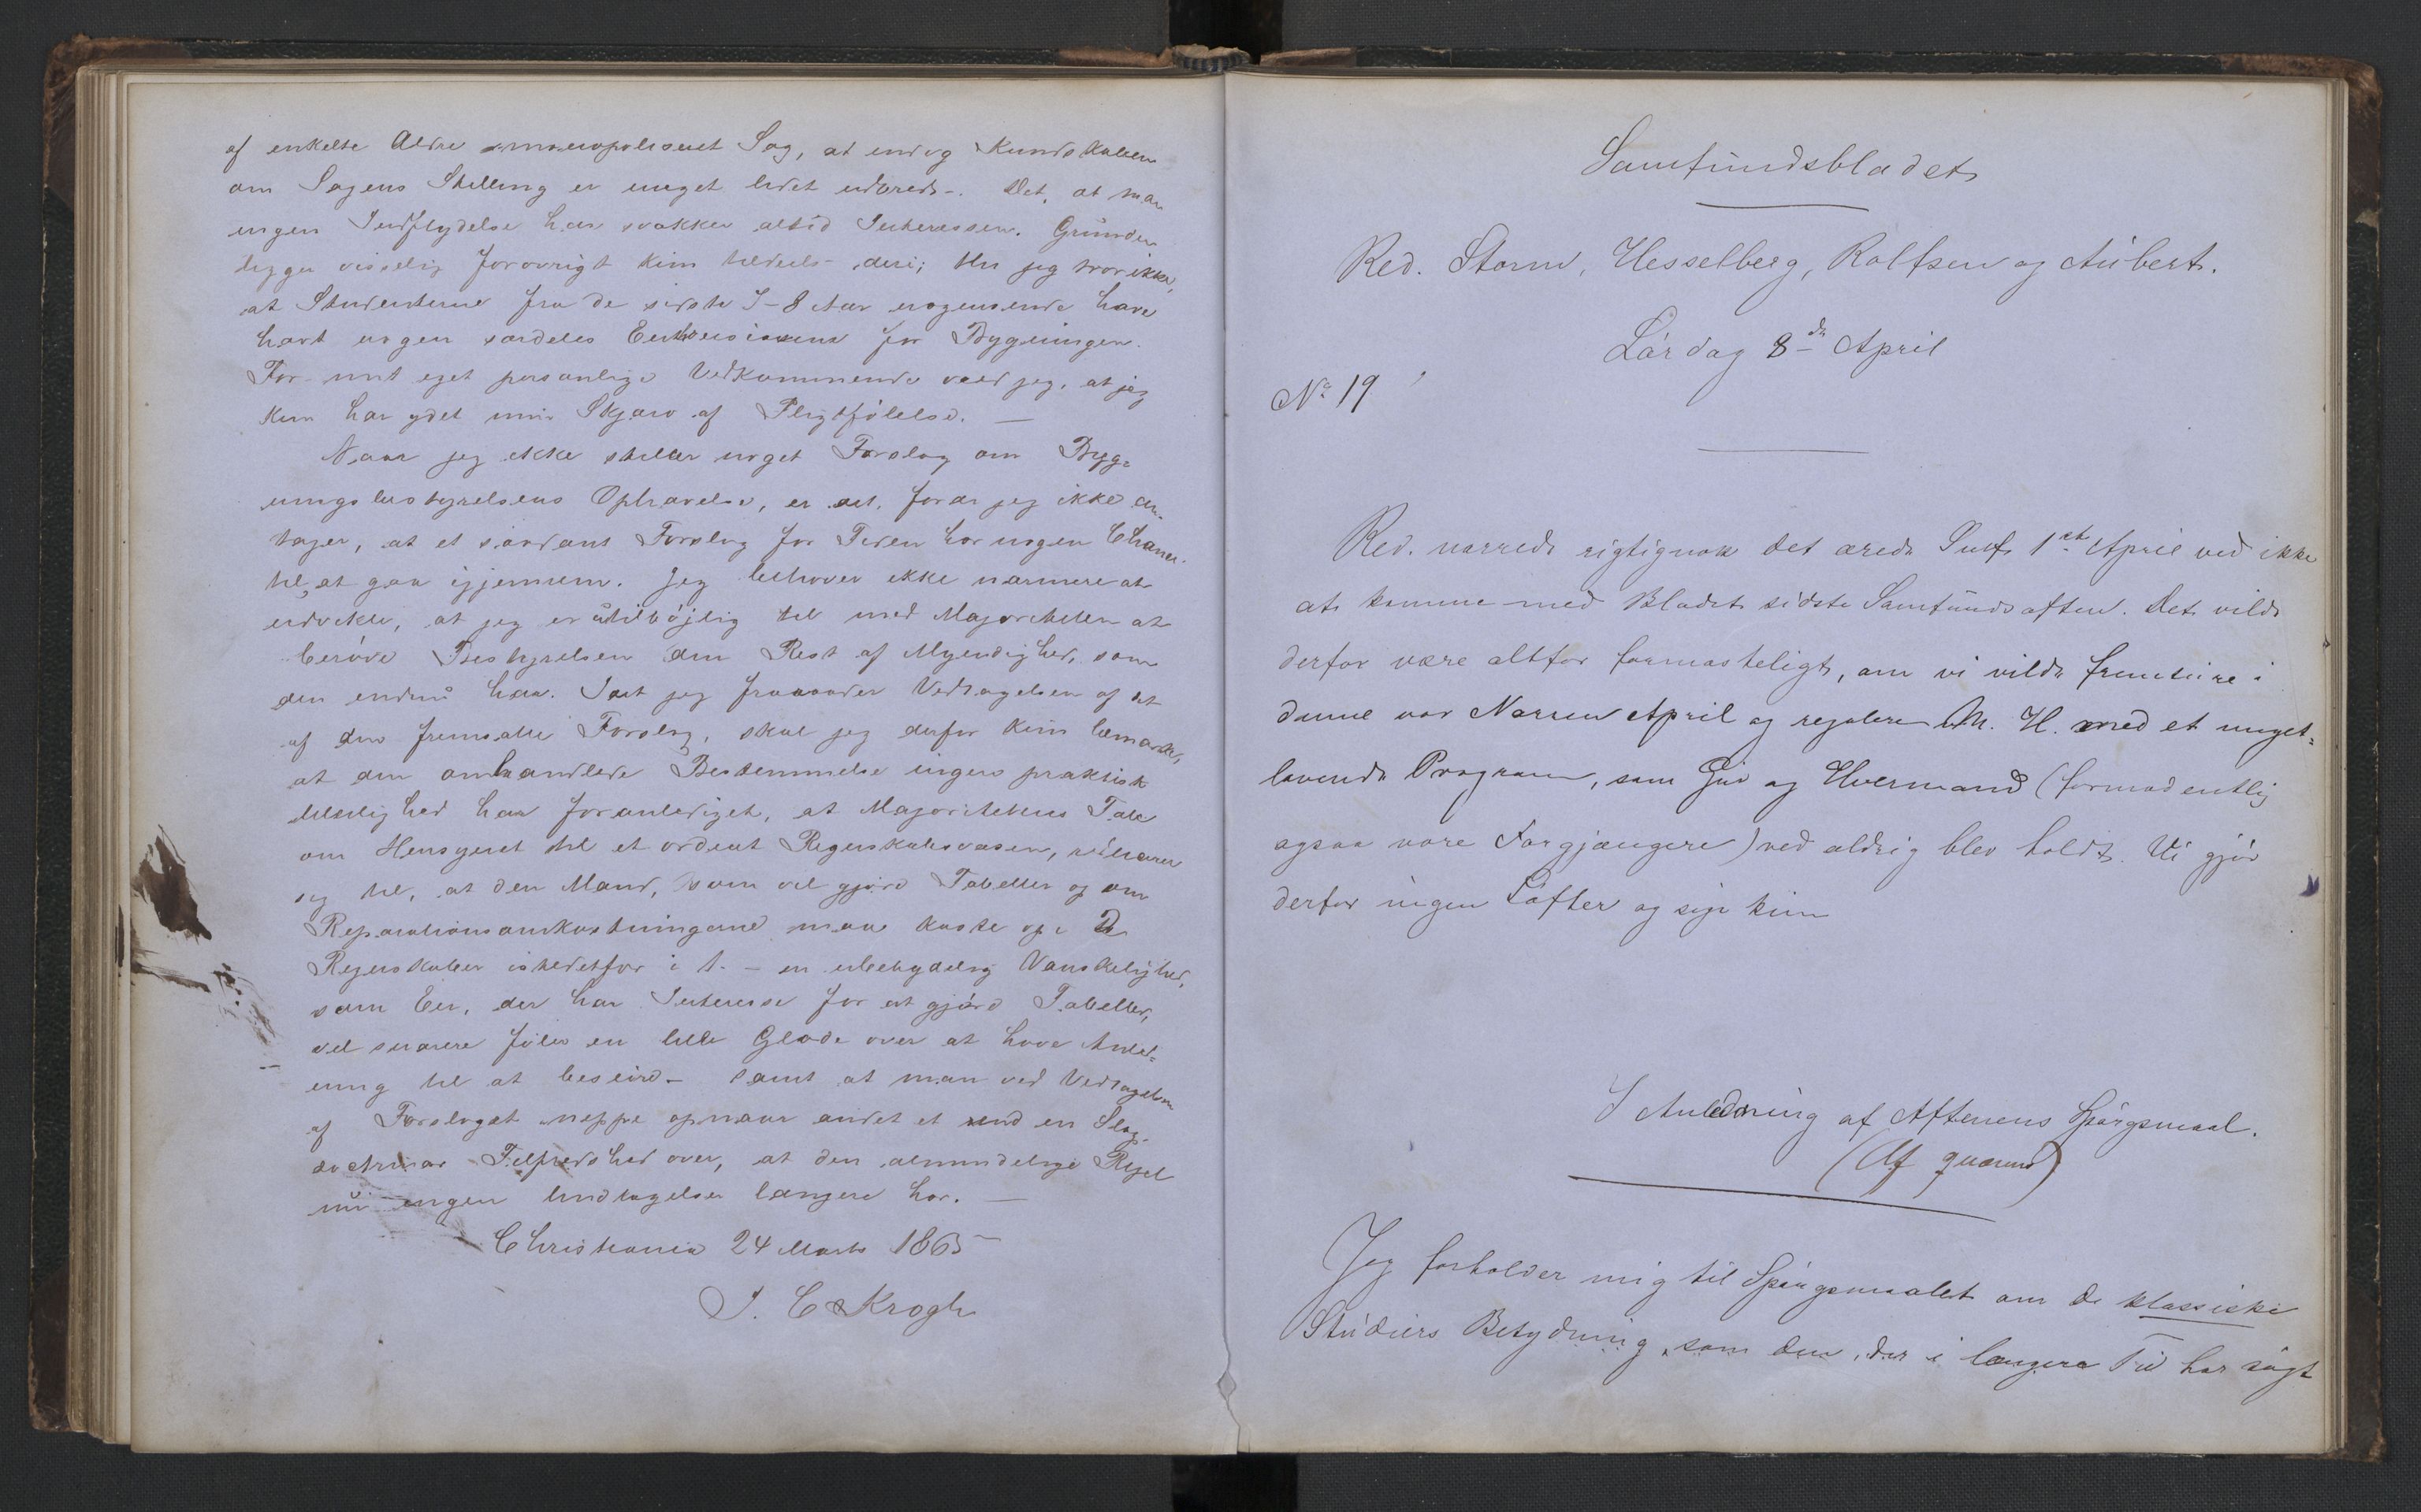 af enkelte Aldre monopoliseret Sag, at endog Kundskaben
om Sagens Stilling er meget lidet udbredt. Det, at man
ingen Indflydelse har svækker altid Interessen. Grunden
ligger visselig forøvrigt kun tildeels deri; thi jeg tror ikke,
at Studenterne fra de sidste 7-8 Aar nogensinde have
havt nogen særdeles Enthusiasme for Bygningen.
For mit eget personlige Vedkommende veed jeg, at jeg
kun har ydet min Skjærv af Pligtfølelse. —
Naar jeg ikke stiller noget Forslag om Byg-
ningsbestyrelsens Ophævelse, er det, fordi jeg ikke an-
tager, at et saadant Forslag for Tiden har nogen Chance
til at gaa igjennem. Jeg behøver ikke nærmere at
udvikle, at jeg er utilbøjlig til med Majoriteten at
berøve Bestyrelsen den Rest af Myndighed, som
den endnu har. Idet jeg fraraader Vedtagelsen af det
af den fremsatte Forslag, skal jeg derfor kun bemærke,
at den omhandlede Bestemmelse ingen praktisk
Ulelighed har foranlediget, at Majoritetens Tale
om Hensynet til et ordent Regnskabsvæsen, reducerer
sig til, at den Mand, som vil gjøre Tabeller og om
Reparationsomkostningerne maa kaste op i 2
Regnskaber istedetfor i 1. — en ubetydelig Vanskelighed,
som En, der har Interesse for at gjøre Tabeller,
vel snarere føler en lille Glæde over at have Anled-
ning til at beseire — samt at man ved Vedtagelsen
af Forslaget neppe opnaar andet end en Slags
doctrinær Tilfredshed over, at den almindelige Regel
nu ingen Undtagelser længere har. —
Christiania 24 Marts 1865
J. C Krogh
Samfundsbladet
Red. Storm, Hesselberg, Rolfsen og Aubert.
Lørdag 8de April
No 19
Red. narrede rigtignok det ærede Smfd 1st April ved ikke
at komme med Bladet sidste Samfundsaften. Det vilde
derfor være altfor formasteligt, om vi vilde fremture i
denne vor Narren April og regalere M. H. med et meget-
lovende Program, som Gud og Hvermand (formodentlig
ogsaa vore Forgjængere) ved aldrig blev holdt. Vi gjør
derfor ingen Løfter og sige kun
I Anledning af Aftenens Spørgsmaal.
(Af quærens)
Jeg forholder mig til Spørgsmaalet om de klassiske
Studiers Betydning, som den, der i længere Tid har søgt